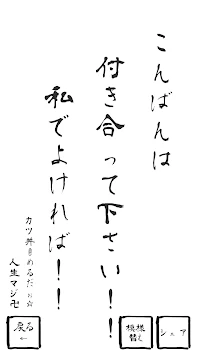 こんばんは
付き合って下さい!!
私でよければ!!
カツ丼きめるだぉ☆
人生マジ卍
戻る
←
模様
替え
シェア